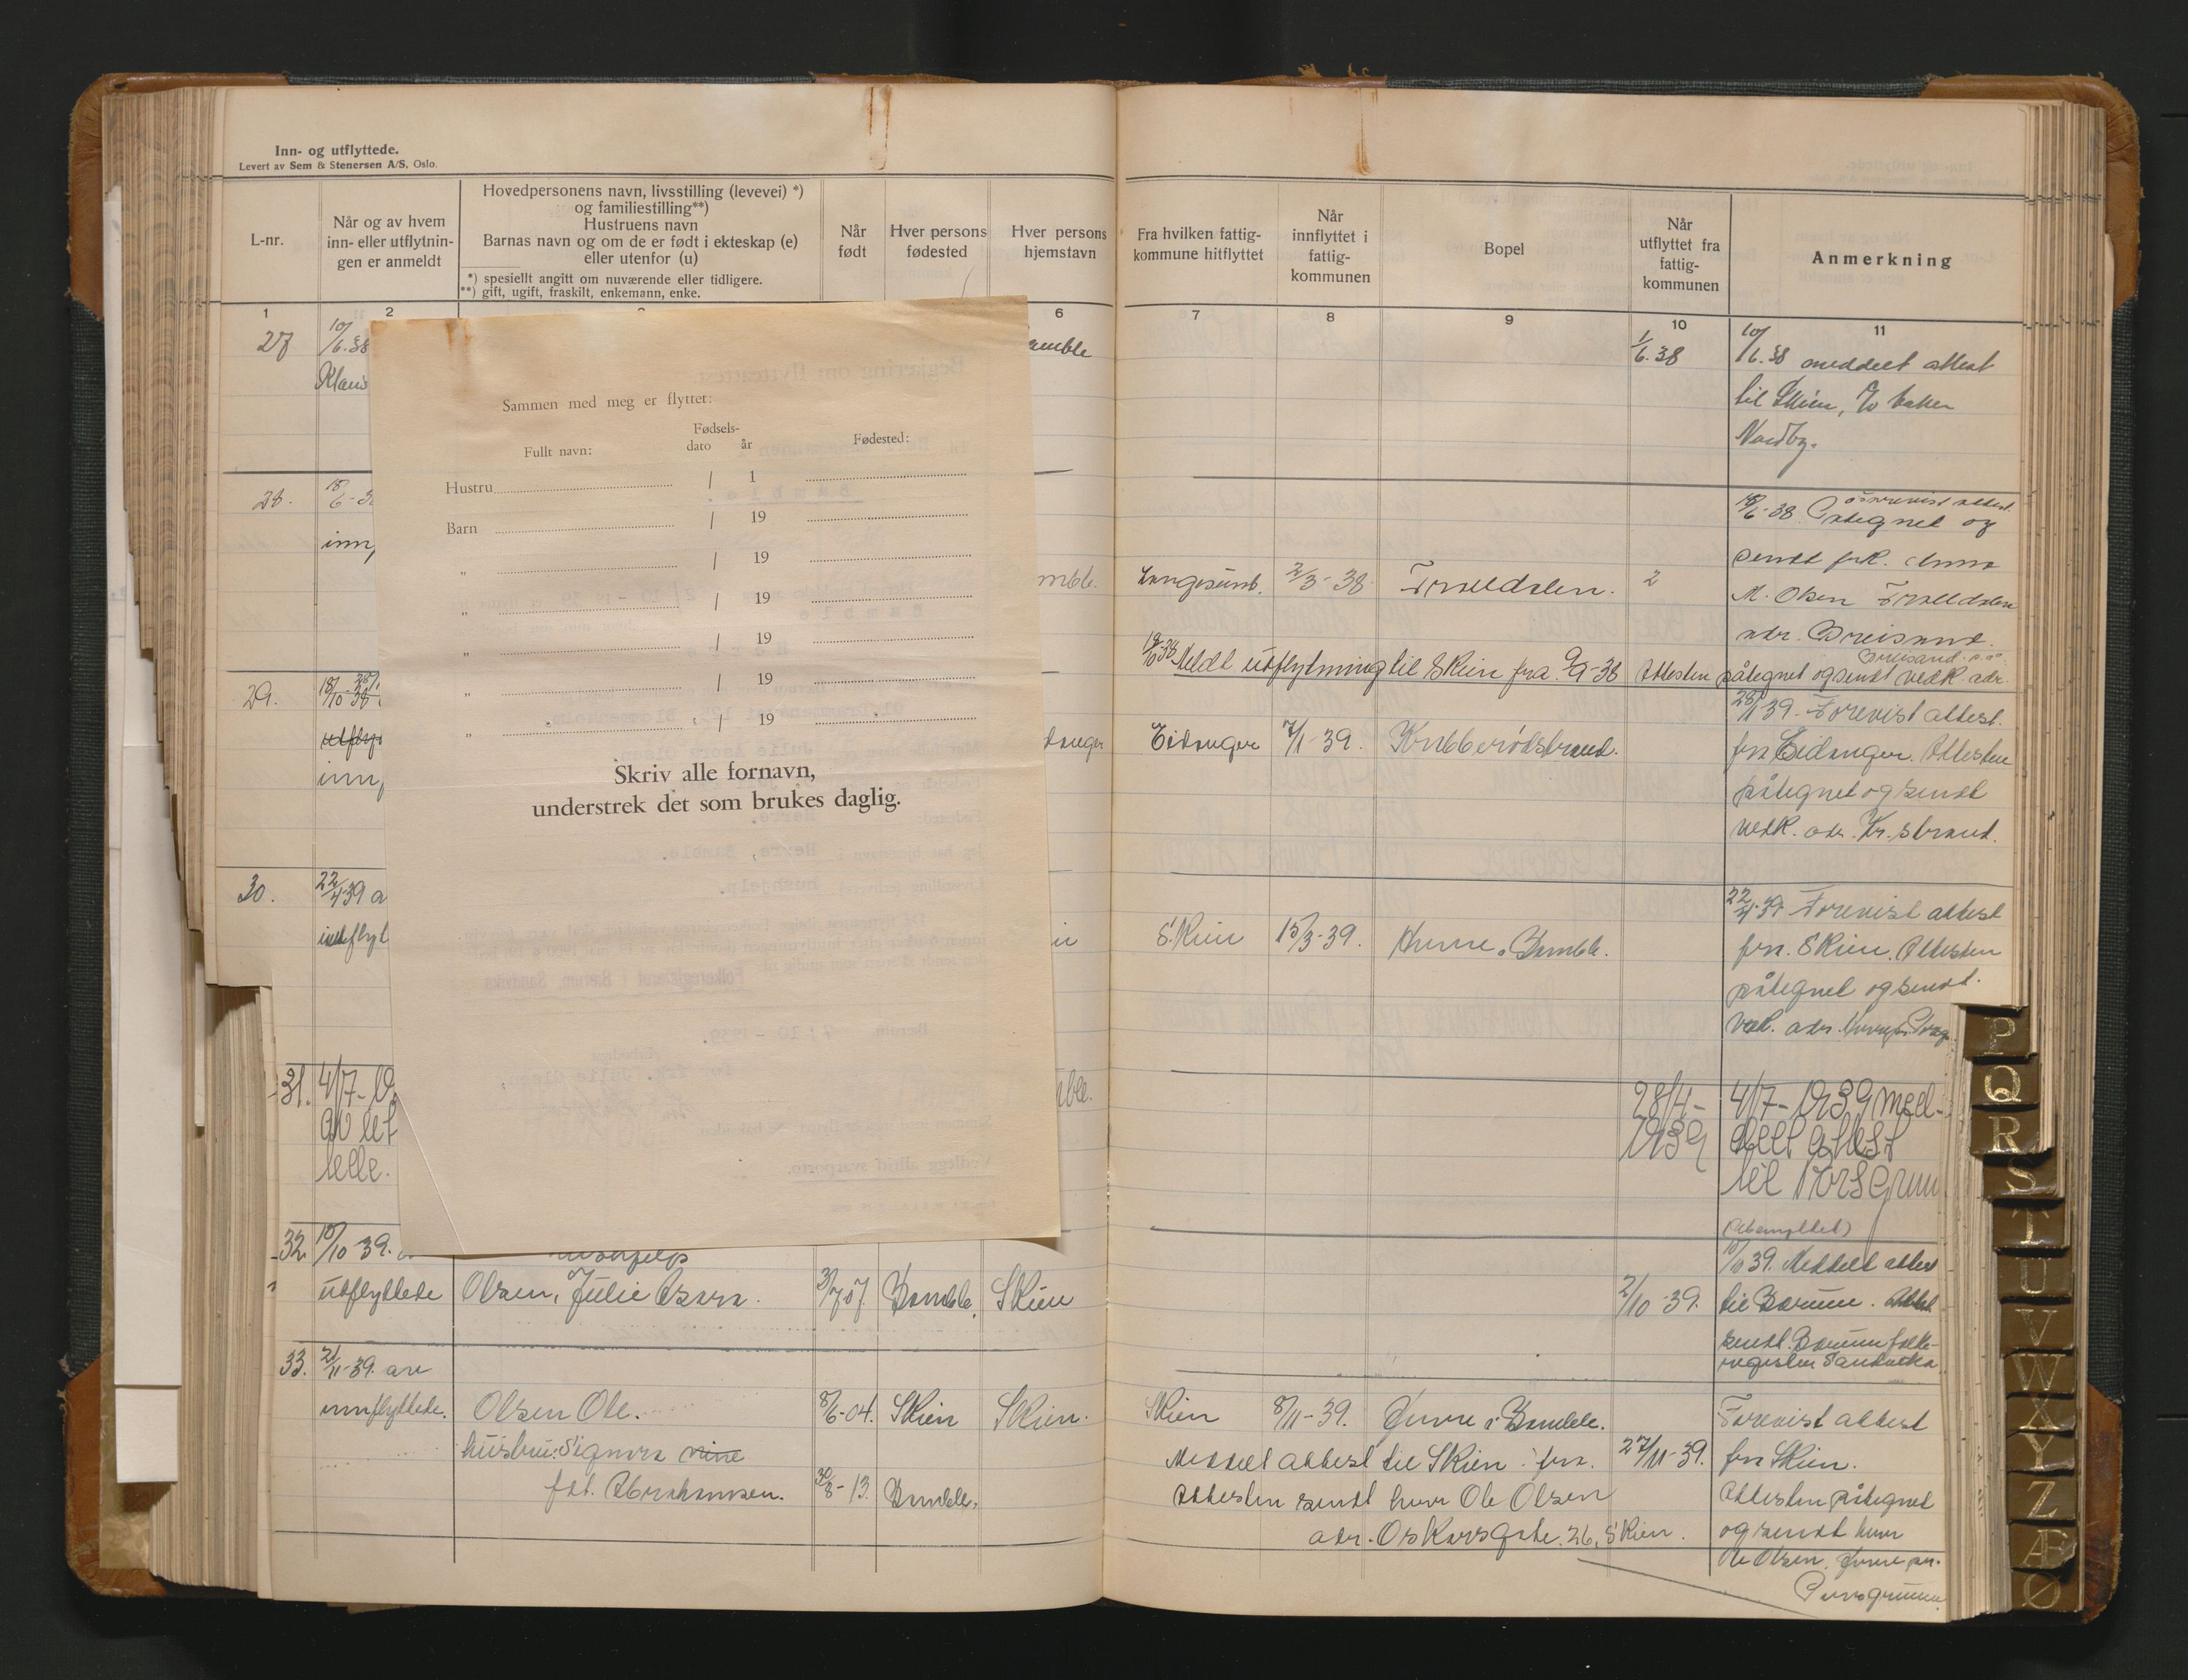 Inn- og utflyttede.
Levert av Sem & Stenersen A/S, Oslo.
L-nr.
Når og av hvem
inn- eller utflytnin-
gen er anmeldt
Hovedpersonens navn, livsstilling (levevei) *)
og familiestilling**)
Hustruens navn
Barnas navn og om de er født i ekteskap (e)
eller utenfor (u)
*) spesiellt angitt om nuværende eller tidligere.
**) gift, ugift, fraskilt, enkemann, enke.
Når
født
Hver persons
fødested
Hver persons
hjemstavn
Fra hvilken fattig-
kommune hitflyttet
Når
innflyttet i
fattig-
kommunen
Bopel
Når
utflyttet fra
fattig-
kommunen
Anmerkning
1 2 6 7 8 9 10 11
27 10/6.38 amble 1/6.38 10/6.38 meddelt attest
til Skien,
Nordby.
28. 18/6-3
inn,
18/6-38. Påtegnet og
sendt frk. Anna
mble. Langesund. 2/3-38 Trolldalen. M. Olsen Trolldalen
adr. Breisand.
19/10-38 Meldt utflytning til Skien fra 9/9-38 Attesten påtegnet og sendt vedk. adr.
Breisand
29. 18/10-38
utflyt
inn,
28/1 39. Forevist attest.
danger Eidanger 7/1-39. Krabberødstrand. fra Eidanger. Attesten
påtegnet og sendt
vedk. adr. Kr. strand.
30. 22/4-39 a
innflyt
22/4-39 Forevist attest
Skien 15/3-39. Herre i Bamble. fra Skien. Attesten
påtegnet og sendt.
vedk. adr.
31. 4/7-19
av let
lelle.
ble. 28/4-
1939
4/7-1939 med-
delt attest
til Porsgrunn
32. 10/10-39.
utflyttede Olsen, Julie Asora. 3/7 07. Bamble, Skien 2/10-39.
10/10 39. Meddelt attest
til Bærum. Attest
sendt Bærum folke-
register Sandvika
33. 21/11-39. av
innflyttede. Olsen Ole. 8/6-04. Skien Skien. Skien 8/11-39. Herre i Bamble. Forevist attest
hustru: Signora
Meddelt attest til Skien fra. 27/11-39. fra Skien.
født. Abrahamsen. 30/8-13. Bamble. Attesten sendt herr Ole Olsen Attesten påtegnet
adr. Oskarsgate. 26, Skien. og sendt herr
Ole Olsen. Herre pr.
Porsgrunn.
Sammen med meg er flyttet:
Fullt navn:
Fødsels-
dato år
Fødested:
Hustru / 1
Barn / 19
„ / 19
„ / 19
„ / 19
„ / 19
„ / 19
Skriv alle fornavn,
understrek det som brukes daglig.
P
Q
R
S
T
U
V
W
X
Y
Z
Æ
Ø